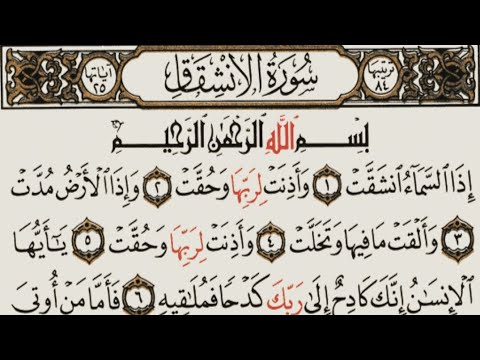 ترتيبها ٨٤ سُورَةُ الْاِنْشِقَاقِ آيَاتُهَا ٢٥
بِسْمِ اللَّهِ الرَّحْمَٰنِ الرَّحِيمِ
إِذَا السَّمَاءُ انْشَقَّتْ ١ وَأَذِنَتْ لِرَبِّهَا وَحُقَّتْ ٢ وَإِذَا الْأَرْضُ مُدَّتْ
٣ وَأَلْقَتْ مَا فِيهَا وَتَخَلَّتْ ٤ وَأَذِنَتْ لِرَبِّهَا وَحُقَّتْ ٥ يَا أَيُّهَا
الْإِنْسَانُ إِنَّكَ كَادِحٌ إِلَىٰ رَبِّكَ كَدْحًا فَمُلَاقِيهِ ٦ فَأَمَّا مَنْ أُوتِيَ